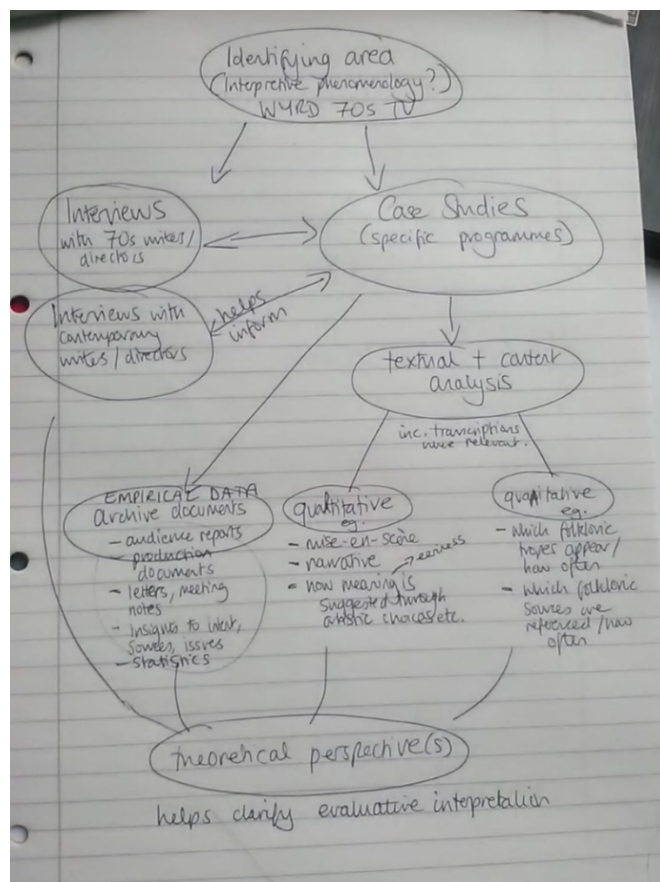 Identifying area
(Interpretive phenomenology?)
WYRD 70s TV
Interviews
with 70s writes/
directors
Case Studies
(specific programmes)
Interviews with
contemporary
writes / directors
helps
inform
textual + content
analysis
inc. transcriptions
where relevant.
EMPIRICAL DATA
archive documents
- audience reports
- production
documents
- letters, meeting
notes
- Insights to intent,
sources, issues
- Statistics
quantitative
eg.
- mise-en-scène
- narrative
- how meaning is
eeriness
suggested through
artistic choices etc.
eg.
- which folkloric
tropes appear/
how often
- which folkloric
sources are
referenced / how
often
theoretical perspective(s)
helps clarify evaluative interpretation